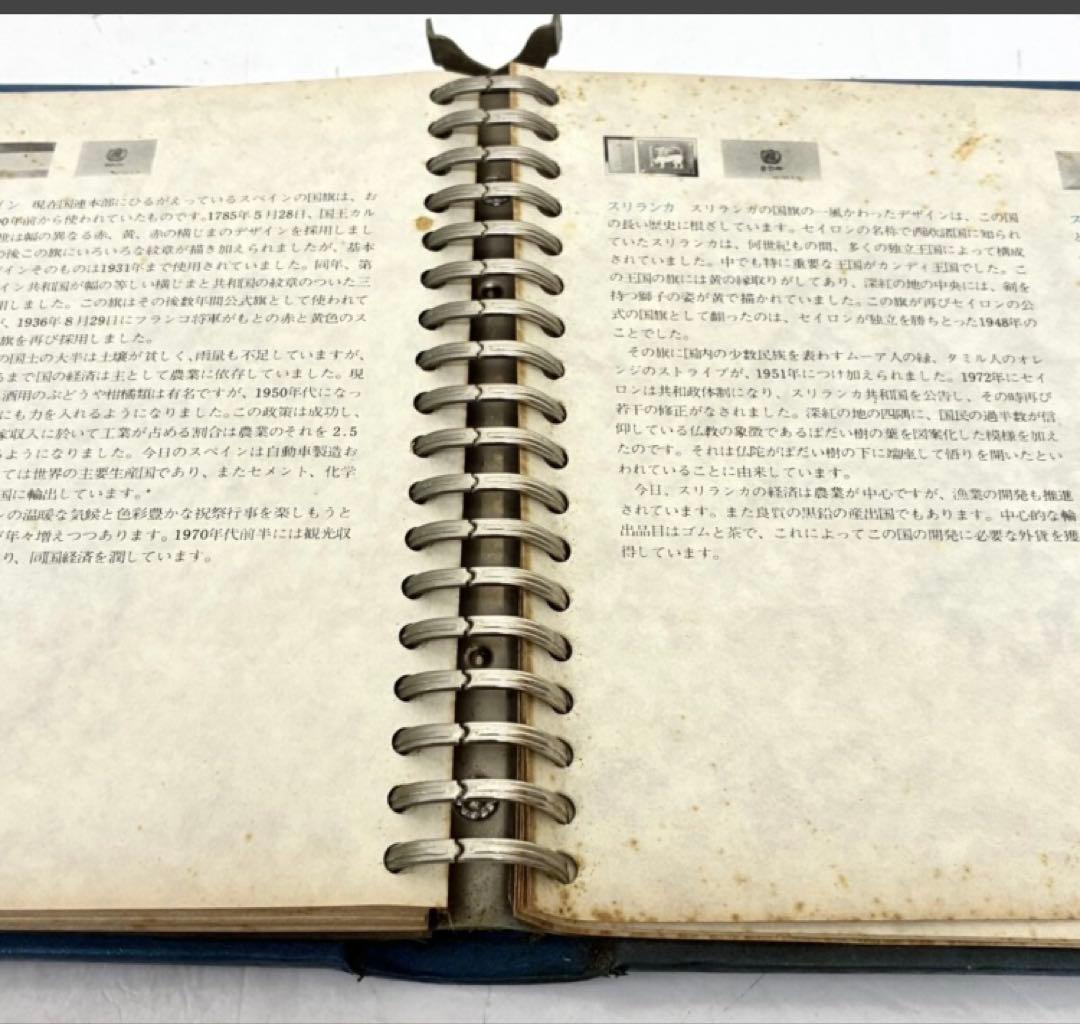 イン 現在国連本部にひるがえっているスペインの国旗は、お
00年前から使われていたものです。1785年5月28日、国王カル
世は幅の異なる赤、黄、赤の横じまのデザインを採用しまし
の後この旗にいろいろな紋章が描き加えられましたが、基本
インそのものは1931年まで使用されていました。同年、第
イン共和国が幅の等しい横じまと共和国の紋章のついた三
用しました。この旗はその後数年間公式旗として使われて
、1936年8月29日にフランコ将軍がもとの赤と黄色のス
旗を再び採用しました。
の国土の大半は土壌が貧しく、雨量も不足していますが、
るまで国の経済は主として農業に依存していました。現
酒用のぶどうや柑橘類は有名ですが、1950年代になっ
にも力を入れるようになりました。この政策は成功し、
家収入に於いて工業が占める割合は農業のそれを2.5
るようになりました。今日のスペインは自動車製造お
ては世界の主要生産国であり、またセメント、化学
国に輸出しています。
ンの温暖な気候と色彩豊かな祝祭行事を楽しもうと
年々増えつつあります。1970年代前半には観光収
り、同国経済を潤しています。
スリランカ スリランカの国旗の一風かわったデザインは、この国
の長い歴史に根ざしています。セイロンの名称で西欧諸国に知られ
ていたスリランカは、何世紀もの間、多くの独立王国によって構成
されていました。中でも特に重要な王国がカンディ王国でした。こ
の王国の旗には黄の縁取りがしてあり、深紅の地の中央には、剣を
持つ獅子の姿が黄で描かれていました。この旗が再びセイロンの公
式の国旗として翻ったのは、セイロンが独立を勝ちとった1948年の
ことでした。
その旗に国内の少数民族を表わすムーア人の緑、タミル人のオレ
ンジのストライプが、1951年につけ加えられました。1972年にセイ
ロンは共和政体制になり、スリランカ共和国を公告し、その時再び
若干の修正がなされました。深紅の地の四隅に、国民の過半数が信
仰している仏教の象徴であるぼだい樹の葉を図案化した模様を加え
たのです。それは仏陀がぼだい樹の下に端座して悟りを開いたとい
われていることに由来しています。
今日、スリランカの経済は農業が中心ですが、漁業の開発も推進
されています。また良質の黒鉛の産出国でもあります。中心的な輸
出品目はゴムと茶で、これによってこの国の開発に必要な外貨を獲
得しています。